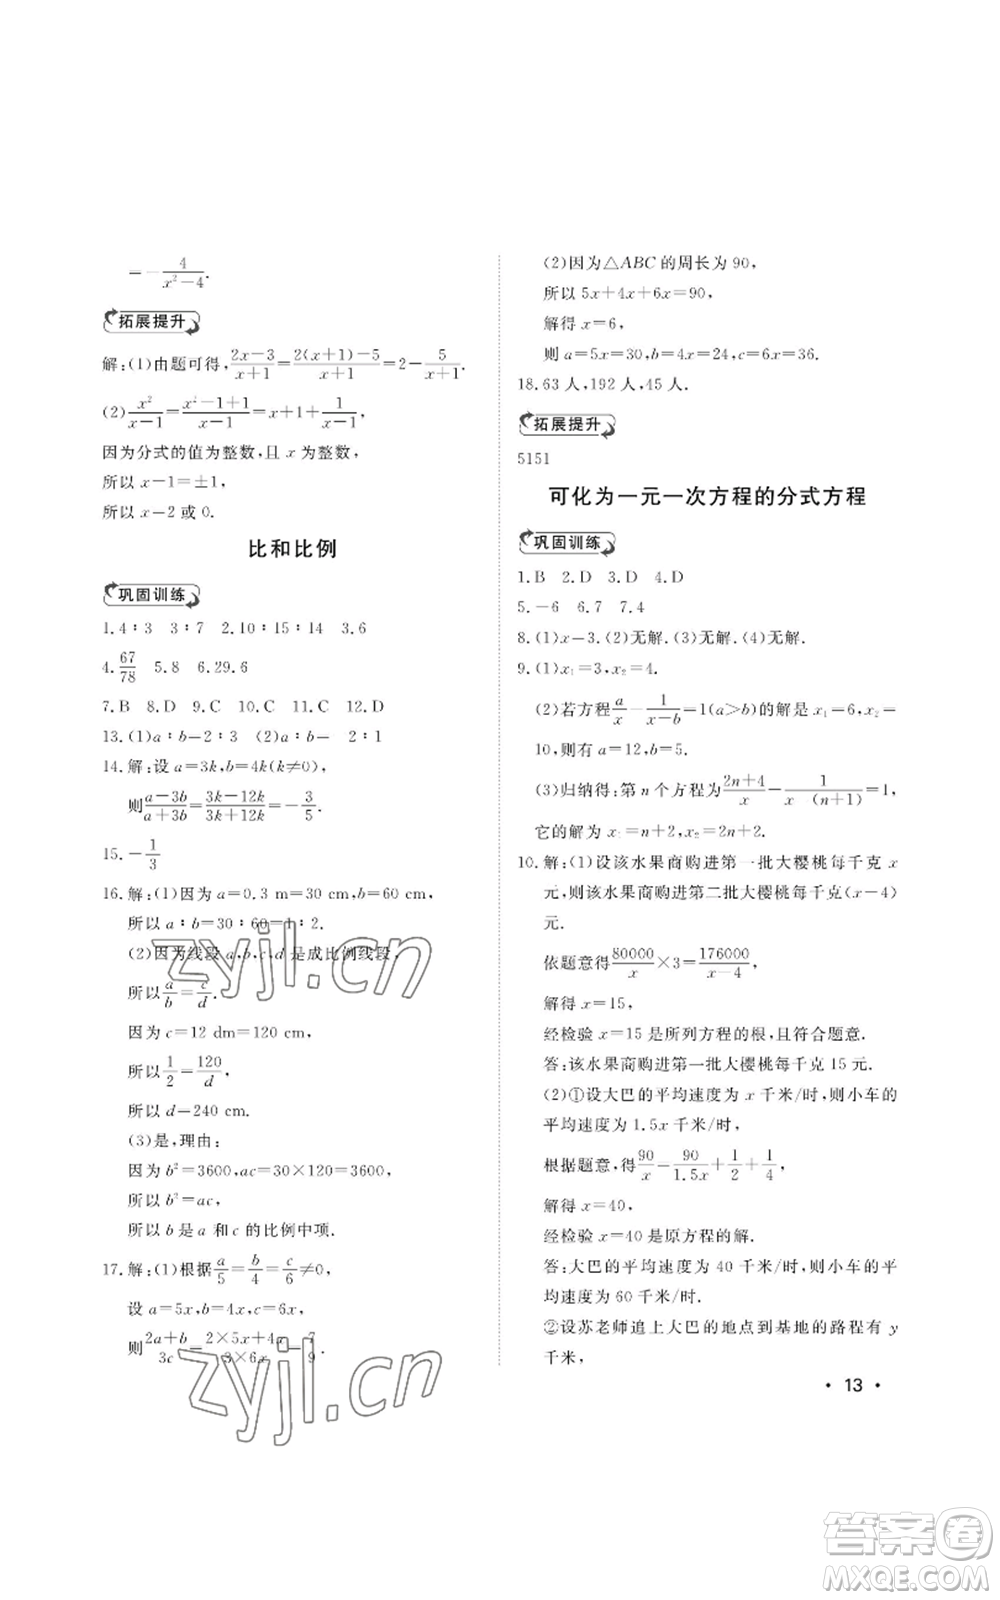 =-4/(x²-4).
拓展提升
解:(1)由题可得,(2x-3)/(x+1)=(2(x+1)-5)/(x+1)=2-5/(x+1).
(2)x²/(x-1)=(x²-1+1)/(x-1)=x+1+1/(x-1),
因为分式的值为整数,且 x 为整数,
所以 x-1=±1,
所以 x-2 或 0.
比和比例
巩固训练
1.4∶3 3∶7 2.10∶15∶14 3.6
4.67/78 5.8 6.29.6
7.B 8.D 9.C 10.C 11.C 12.D
13.(1)a∶b-2∶3 (2)a∶b- 2∶1
14.解:设 a=3k,b=4k(k≠0),
则(a-3b)/(a+3b)=(3k-12k)/(3k+12k)=-3/5.
15.-1/3
16.解:(1)因为 a=0.3 m=30 cm,b=60 cm,
所以 a∶b=30∶60=1∶2.
(2)因为线段 a,b,c,d 是成比例线段,
所以a/b=c/d.
因为 c=12 dm=120 cm,
所以1/2=120/d,
所以 d-240 cm.
(3)是,理由:
因为 b²=3600,ac=30×120=3600,
所以 b²=ac,
所以 b 是 a 和 c 的比例中项.
17.解:(1)根据a/5=b/4=c/6≠0,
设 a=5x,b=4x,c=6x,
则(2a+b)/3c=(2×5x+4x)/(3×6x)=7/9.
(2)因为△ABC 的周长为 90,
所以 5x+4x+6x=90,
解得 x=6,
则 a=5x=30,b=4x=24,c=6x=36.
18.63 人,192 人,45 人.
拓展提升
5151
可化为一元一次方程的分式方程
巩固训练
1.B 2.D 3.D 4.D
5.-6 6.7 7.4
8.(1)x-3.(2)无解.(3)无解.(4)无解.
9.(1)x₁=3,x₂=4.
(2)若方程a/x-1/(x-b)=1(a>b)的解是 x₁=6,x₂=
10,则有 a=12,b=5.
(3)归纳得:第 n 个方程为(2n+4)/x-1/(x-(n+1))=1,
它的解为 x₁=n+2,x₂=2n+2.
10.解:(1)设该水果商购进第一批大樱桃每千克 x
元,则该水果商购进第二批大樱桃每千克(x-4)
元.
依题意得80000/x×3=176000/(x-4),
解得 x=15,
经检验 x=15 是所列方程的根,且符合题意.
答:该水果商购进第一批大樱桃每千克 15 元.
(2)①设大巴的平均速度为 x 千米/时,则小车的
平均速度为 1.5x 千米/时,
根据题意,得90/x=90/1.5x+1/2+1/4,
解得 x=40,
经检验 x=40 是原方程的解.
答:大巴的平均速度为 40 千米/时,则小车的平
均速度为 60 千米/时.
②设苏老师追上大巴的地点到基地的路程有 y
千米,
• 13 •
zyjl.cn
zyjl.cn
答案圈
MXQE.COM